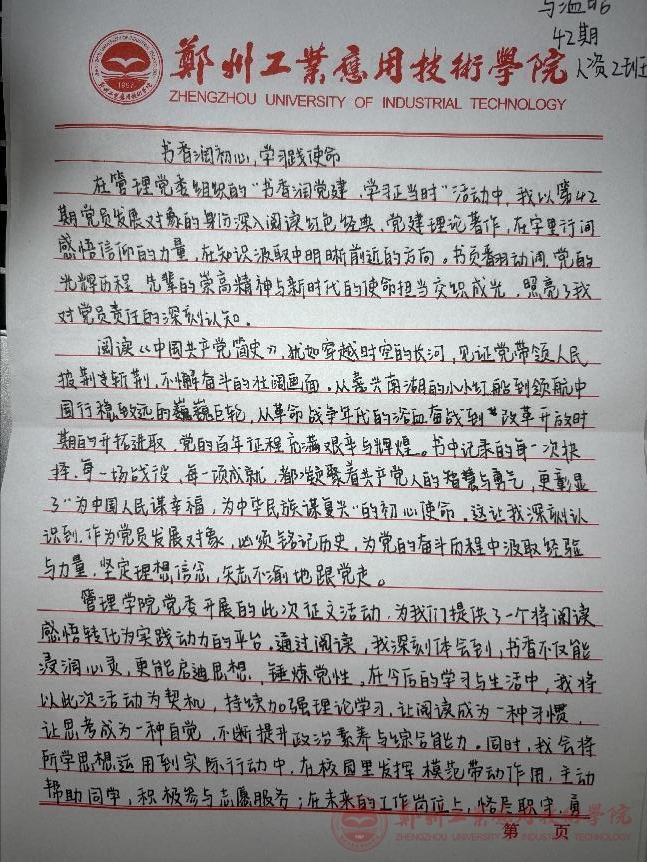 42期
人资2班
鄭州工業應用技術學院
ZHENGZHOU UNIVERSITY OF INDUSTRIAL TECHNOLOGY
书香润初心,学习践使命
在管理党委组织的“书香润党建,学习正当时”活动中,我以第42
期党员发展对象的身份深入阅读红色经典、党建理论著作,在字里行间
感悟信仰的力量,在知识汲取中明晰前进的方向。书页翻动间,党的
光辉历程、先辈的崇高精神与新时代的使命担当交织成光,照亮了我
对党员责任的深刻认知。
阅读《中国共产党简史》,犹如穿越时空的长河,见证党带领人民
披荆斩棘、不懈奋斗的壮阔画面。从嘉兴南湖的小小红船到领航中
国行稳致远的巍巍巨轮,从革命战争年代的浴血奋战到改革开放时
期的开拓进取,党的百年征程充满艰辛与辉煌。书中记录的每一次抉
择、每一场战役、每一项成就,都凝聚着共产党人的智慧与勇气,更彰显
了“为中国人民谋幸福,为中华民族谋复兴”的初心使命。这让我深刻认
识到,作为党员发展对象,必须铭记历史,为党的奋斗历程中汲取经验
与力量,坚定理想信念,矢志不渝地跟党走。
管理学院党委开展的此次征文活动,为我们提供了一个将阅读
感悟转化为实践动力的平台。通过阅读,我深刻体会到,书香不仅能
浸润心灵,更能启迪思想、锤炼党性。在今后的学习与生活中,我将
以此次活动为契机,持续加强理论学习,让阅读成为一种习惯,
让思考成为一种自觉,不断提升政治素养与综合能力。同时,我会将
所学思想运用到实际行动中,在校园里发挥模范带动作用,主动
帮助同学,积极参与志愿服务;在未来的工作岗位上,恪尽职守,勇
鄭州工業應用技術學院
ZHENGZHOU UNIVERSITY OF INDUSTRIAL TECHNOLOGY
第 页